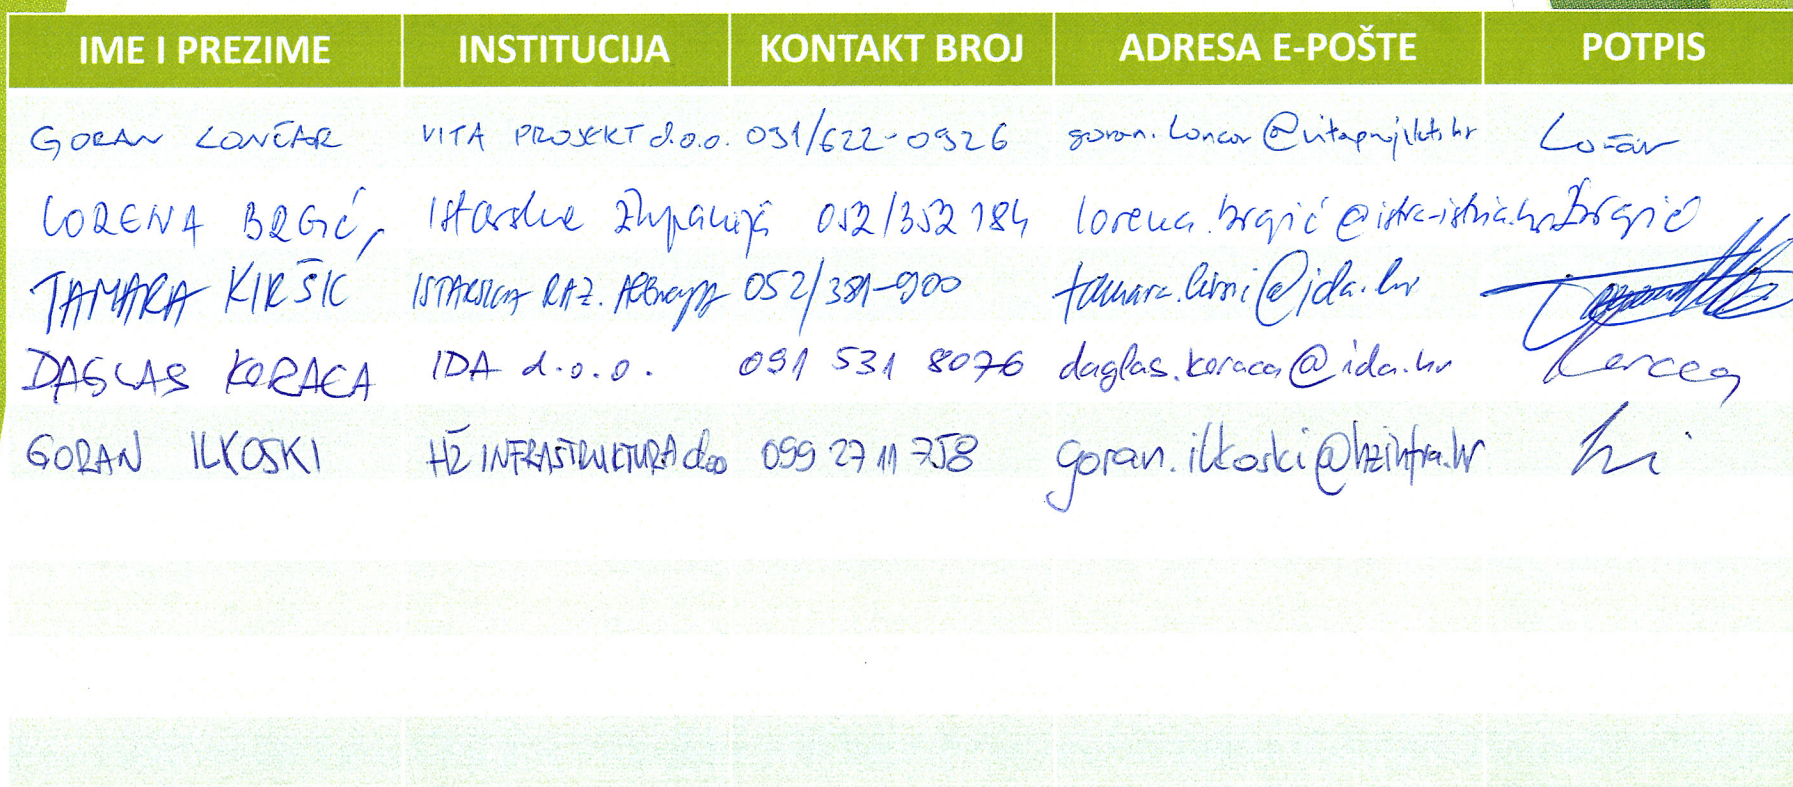 IME I PREZIME INSTITUCIJA KONTAKT BROJ ADRESA E-POŠTE POTPIS
GORAN LONČAR VITA PROJEKT d.o.o. 091/622-0926 goran.loncar@vitaprojekt.hr
LORENA BRGIĆ, Istarska županija 052/352 184 lorena.brgić@istra-istria.hr Brgić
TAMARA KIRŠIĆ ISTARSKA RAZ. 052/381-900
DAGLAS KORACA IDA d.o.o. 091 531 8076 daglas.koraca@ida.hr
GORAN ILKOSKI HŽ INFRASTRUKTURA doo 099 27 11 758 goran.ilkoski@hzinfra.hr